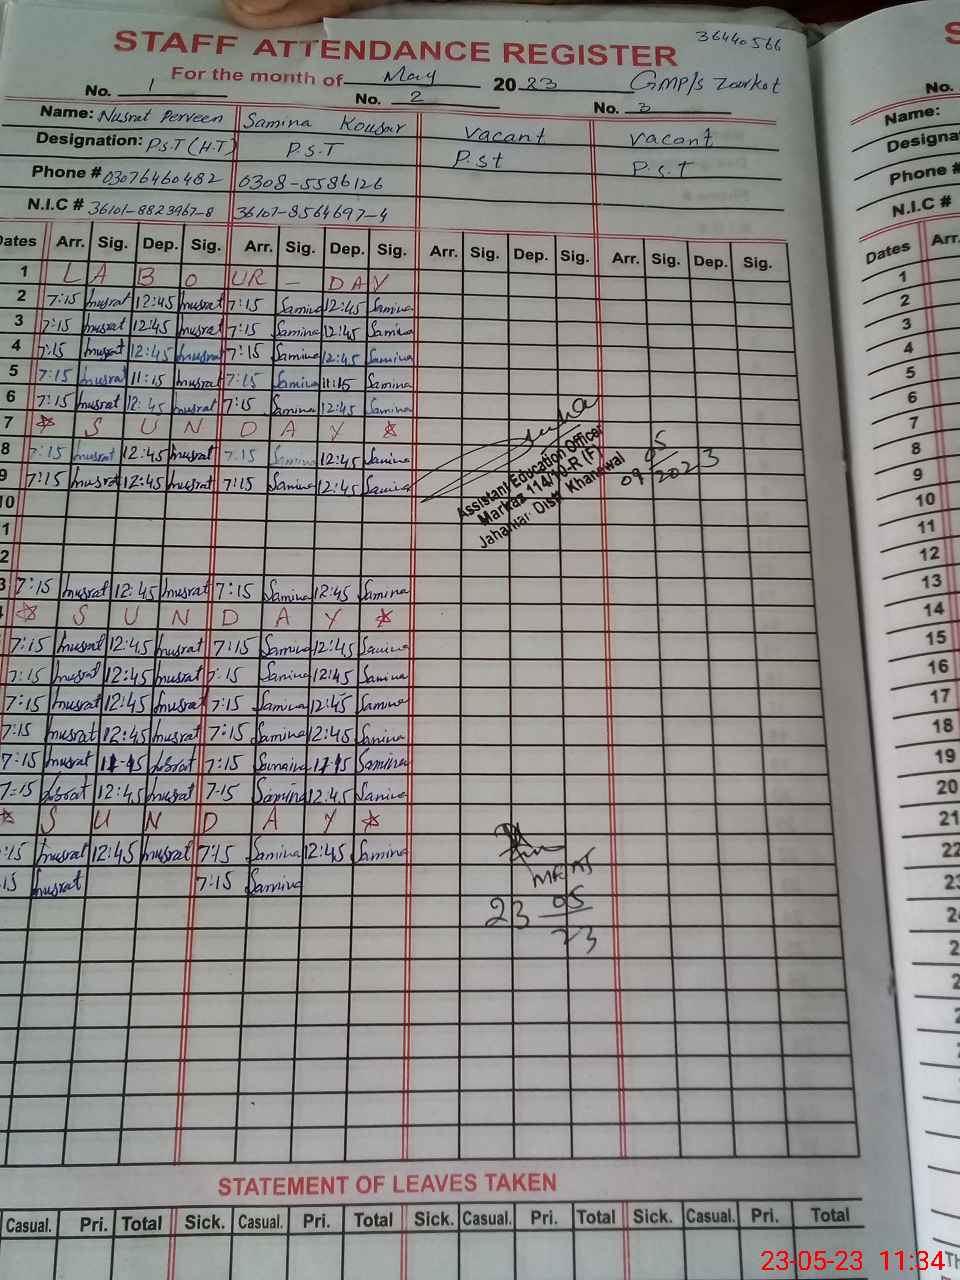 36440566
STAFF ATTENDANCE REGISTER
For the month of May 2023 GMP/s
No. 1 No. 2 No. 3
Name: Nusrat Perveen Samina Kousar vacant vacant
Designation: P.S.T (H.T) P.S.T P.st P.s.T
Phone # 03076460482 0308-5586126
N.I.C # 36101-8823967-8
Dates Arr. Sig. Dep. Sig. Arr. Sig. Dep. Sig. Arr. Sig. Dep. Sig. Arr. Sig. Dep. Sig.
1 LABOUR - DAY
2 7:15 nusrat 12:45 nusrat 7:15 Samina 12:45 Samina
3 7:15 nusrat 12:45 nusrat 7:15 Samina 12:45 Samina
4 7:15 nusrat 12:45 nusrat 7:15 Samina 12:45 Samina
5 7:15 nusrat 11:15 nusrat 7:15 Samina 11:15 Samina
6 7:15 nusrat 12:45 nusrat 7:15 Samina 12:45 Samina
7 S U N D A Y
8 7:15 nusrat 12:45 nusrat 7:15 Samina 12:45 Samina
9 7:15 nusrat 12:45 nusrat 7:15 Samina 12:45 Samina
Assistant Education Officer
Markaz 114/10-R (F)
Jahanian Distt Khanewal
09 05 2023
10
1
2
3 7:15 nusrat 12:45 nusrat 7:15 Samina 12:45 Samina
S U N D A Y
7:15 nusrat 12:45 nusrat 7:15 Samina 12:45 Samina
7:15 nusrat 12:45 nusrat 7:15 Samina 12:45 Samina
7:15 nusrat 12:45 nusrat 7:15 Samina 12:45 Samina
7:15 nusrat 12:45 nusrat 7:15 Samina 12:45 Samina
7:15 nusrat 7:15 Samina Samina
7:15 12:45 nusrat 7:15 Samina 12:45 Samina
S U N D A Y
:15 nusrat 12:45 nusrat 7:15 Samina 12:45 Samina
15 nusrat 7:15 Samina
23 05
23
STATEMENT OF LEAVES TAKEN
Casual. Pri. Total Sick. Casual. Pri. Total Sick. Casual. Pri. Total Sick. Casual. Pri. Total
No.
Name:
Designa
Phone #
N.I.C #
Dates Arr.
1
2
3
4
5
6
7
8
9
10
11
12
13
14
15
16
17
18
19
20
21
22
23-05-23 11:34